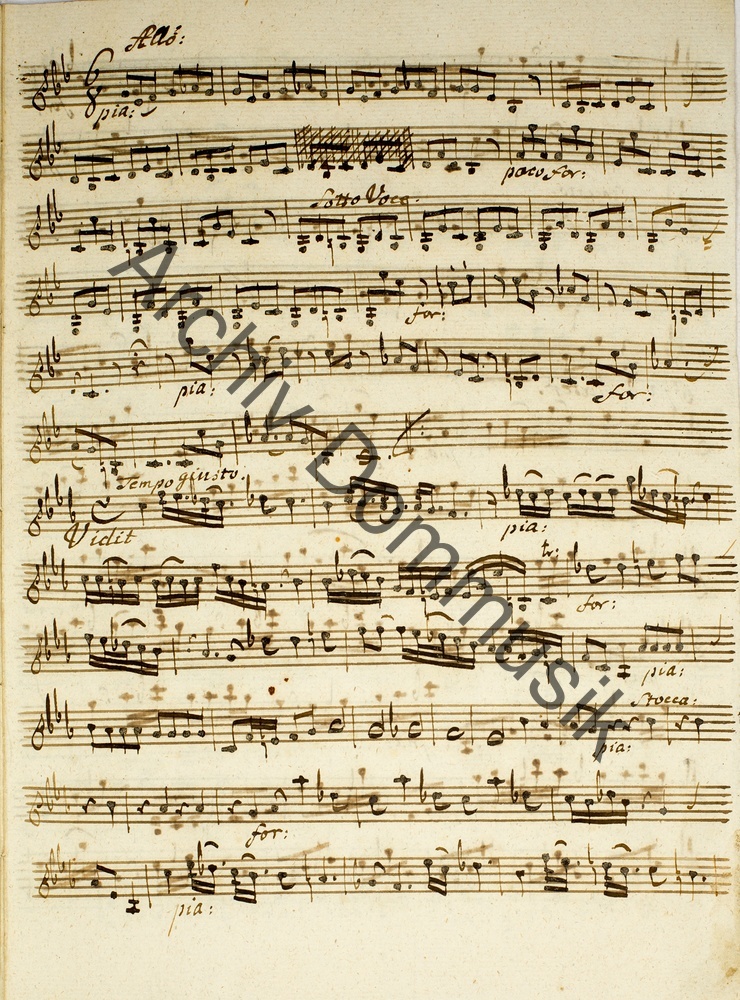 Allo:
6
8
pia:
poco for:
Sotto Voce.
for:
pia: for:
Tempo giusto.
Vidit
pia:
tr:
for:
pia:
Stocca:
pia:
for:
pia:
Archiv Dommusik